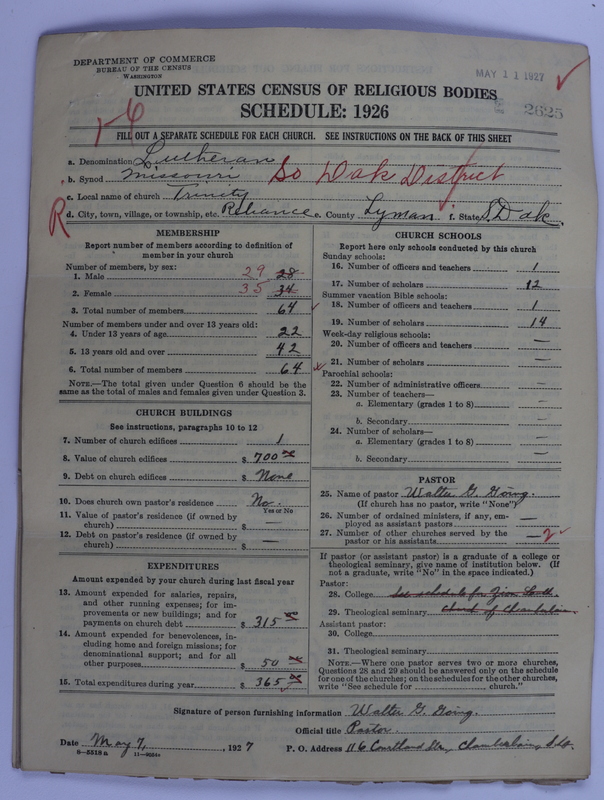 DEPARTMENT OF COMMERCE
BUREAU OF THE CENSUS
WASHINGTON
MAY 11 1927
UNITED STATES CENSUS OF RELIGIOUS BODIES
SCHEDULE: 1926
2625
1-6
FILL OUT A SEPARATE SCHEDULE FOR EACH CHURCH. SEE INSTRUCTIONS ON THE BACK OF THIS SHEET
a. Denomination Lutheran
b. Synod Missouri So Dak District
c. Local name of church Trinity
R
d. City, town, village, or township, etc. Reliance e. County Lyman f. State S. Dak.
MEMBERSHIP
Report number of members according to definition of
member in your church
Number of members, by sex:
1. Male 29 28
2. Female 35 34
3. Total number of members 64
Number of members under and over 13 years old:
4. Under 13 years of age 22
5. 13 years old and over 42
6. Total number of members 64
NOTE.—The total given under Question 6 should be
same as the total of males and females given under Question 3.
CHURCH BUILDINGS
See instructions, paragraphs 10 to 12
7. Number of church edifices 1
8. Value of church edifices $ 700
9. Debt on church edifices $ None
10. Does church own pastor's residence No.
Yes or No
11. Value of pastor's residence (if owned by
church) $ —
12. Debt on pastor's residence (if owned by
church) $ —
EXPENDITURES
Amount expended by your church during last fiscal year
13. Amount expended for salaries, repairs,
and other running expenses; for im-
provements or new buildings; and for
payments on church debt $ 315
14. Amount expended for benevolences, in-
cluding home and foreign missions; for
denominational support; and for all
other purposes $ 50
15. Total expenditures during year $ 365
CHURCH SCHOOLS
Report here only schools conducted by this church
Sunday schools:
16. Number of officers and teachers 1
17. Number of scholars 12
Summer vacation Bible schools:
18. Number of officers and teachers 1
19. Number of scholars 14
Week-day religious schools:
20. Number of officers and teachers —
21. Number of scholars —
Parochial schools:
22. Number of administrative officers —
23. Number of teachers—
a. Elementary (grades 1 to 8) —
b. Secondary —
24. Number of scholars—
a. Elementary (grades 1 to 8) —
b. Secondary —
PASTOR
25. Name of pastor Walter G. Going.
(If church has no pastor, write "None")
26. Number of ordained ministers, if any, em-
ployed as assistant pastors —
27. Number of other churches served by the
pastor or his assistants — 2
If pastor (or assistant pastor) is a graduate of a college or
theological seminary, give name of institution below. (If
not a graduate, write "No" in the space indicated.)
Pastor:
28. College See schedule for Zion Luth.
29. Theological seminary church of Chamberlain
Assistant pastor:
30. College
31. Theological seminary
NOTE.—Where one pastor serves two or more churches,
Questions 28 and 29 should be answered only on the schedule
for one of the churches; on the schedules for the other churches,
write "See schedule for church."
Signature of person furnishing information Walter G. Going.
Official title Pastor.
Date May 7, , 1927 P. O. Address 116 Courtland Str., Chamberlain, S. D.
8-5518 a 11-9554